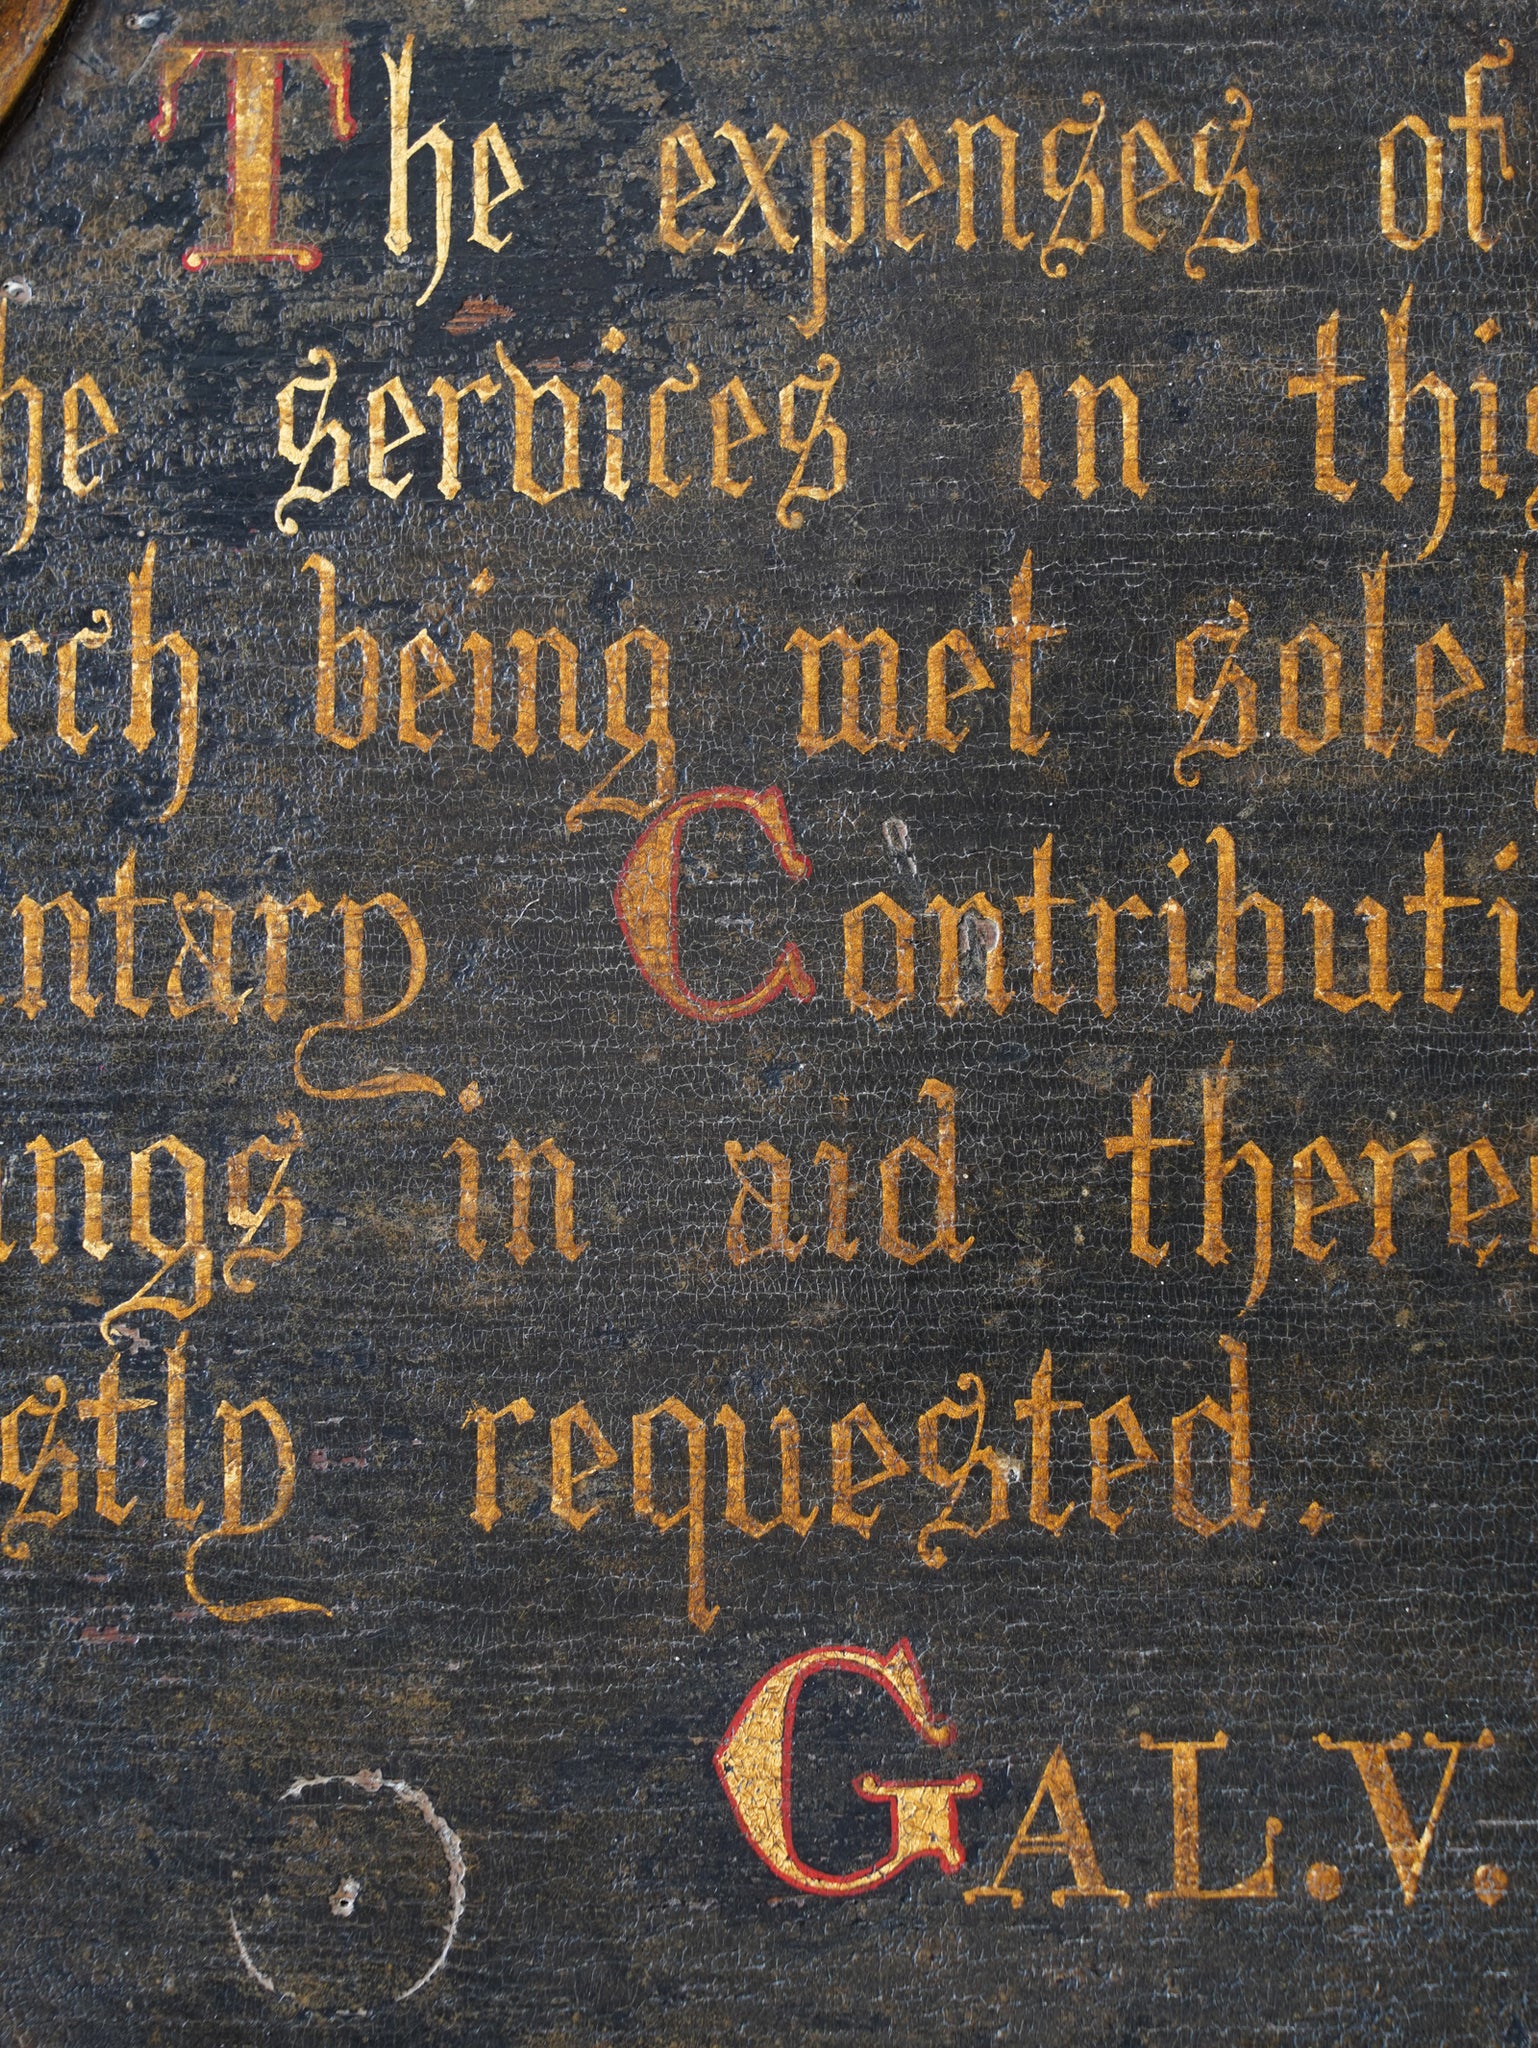 The expenses of
he services in this
rch being met solel
ntary Contributi
ngs in aid there
stly requested.
GAL.V.